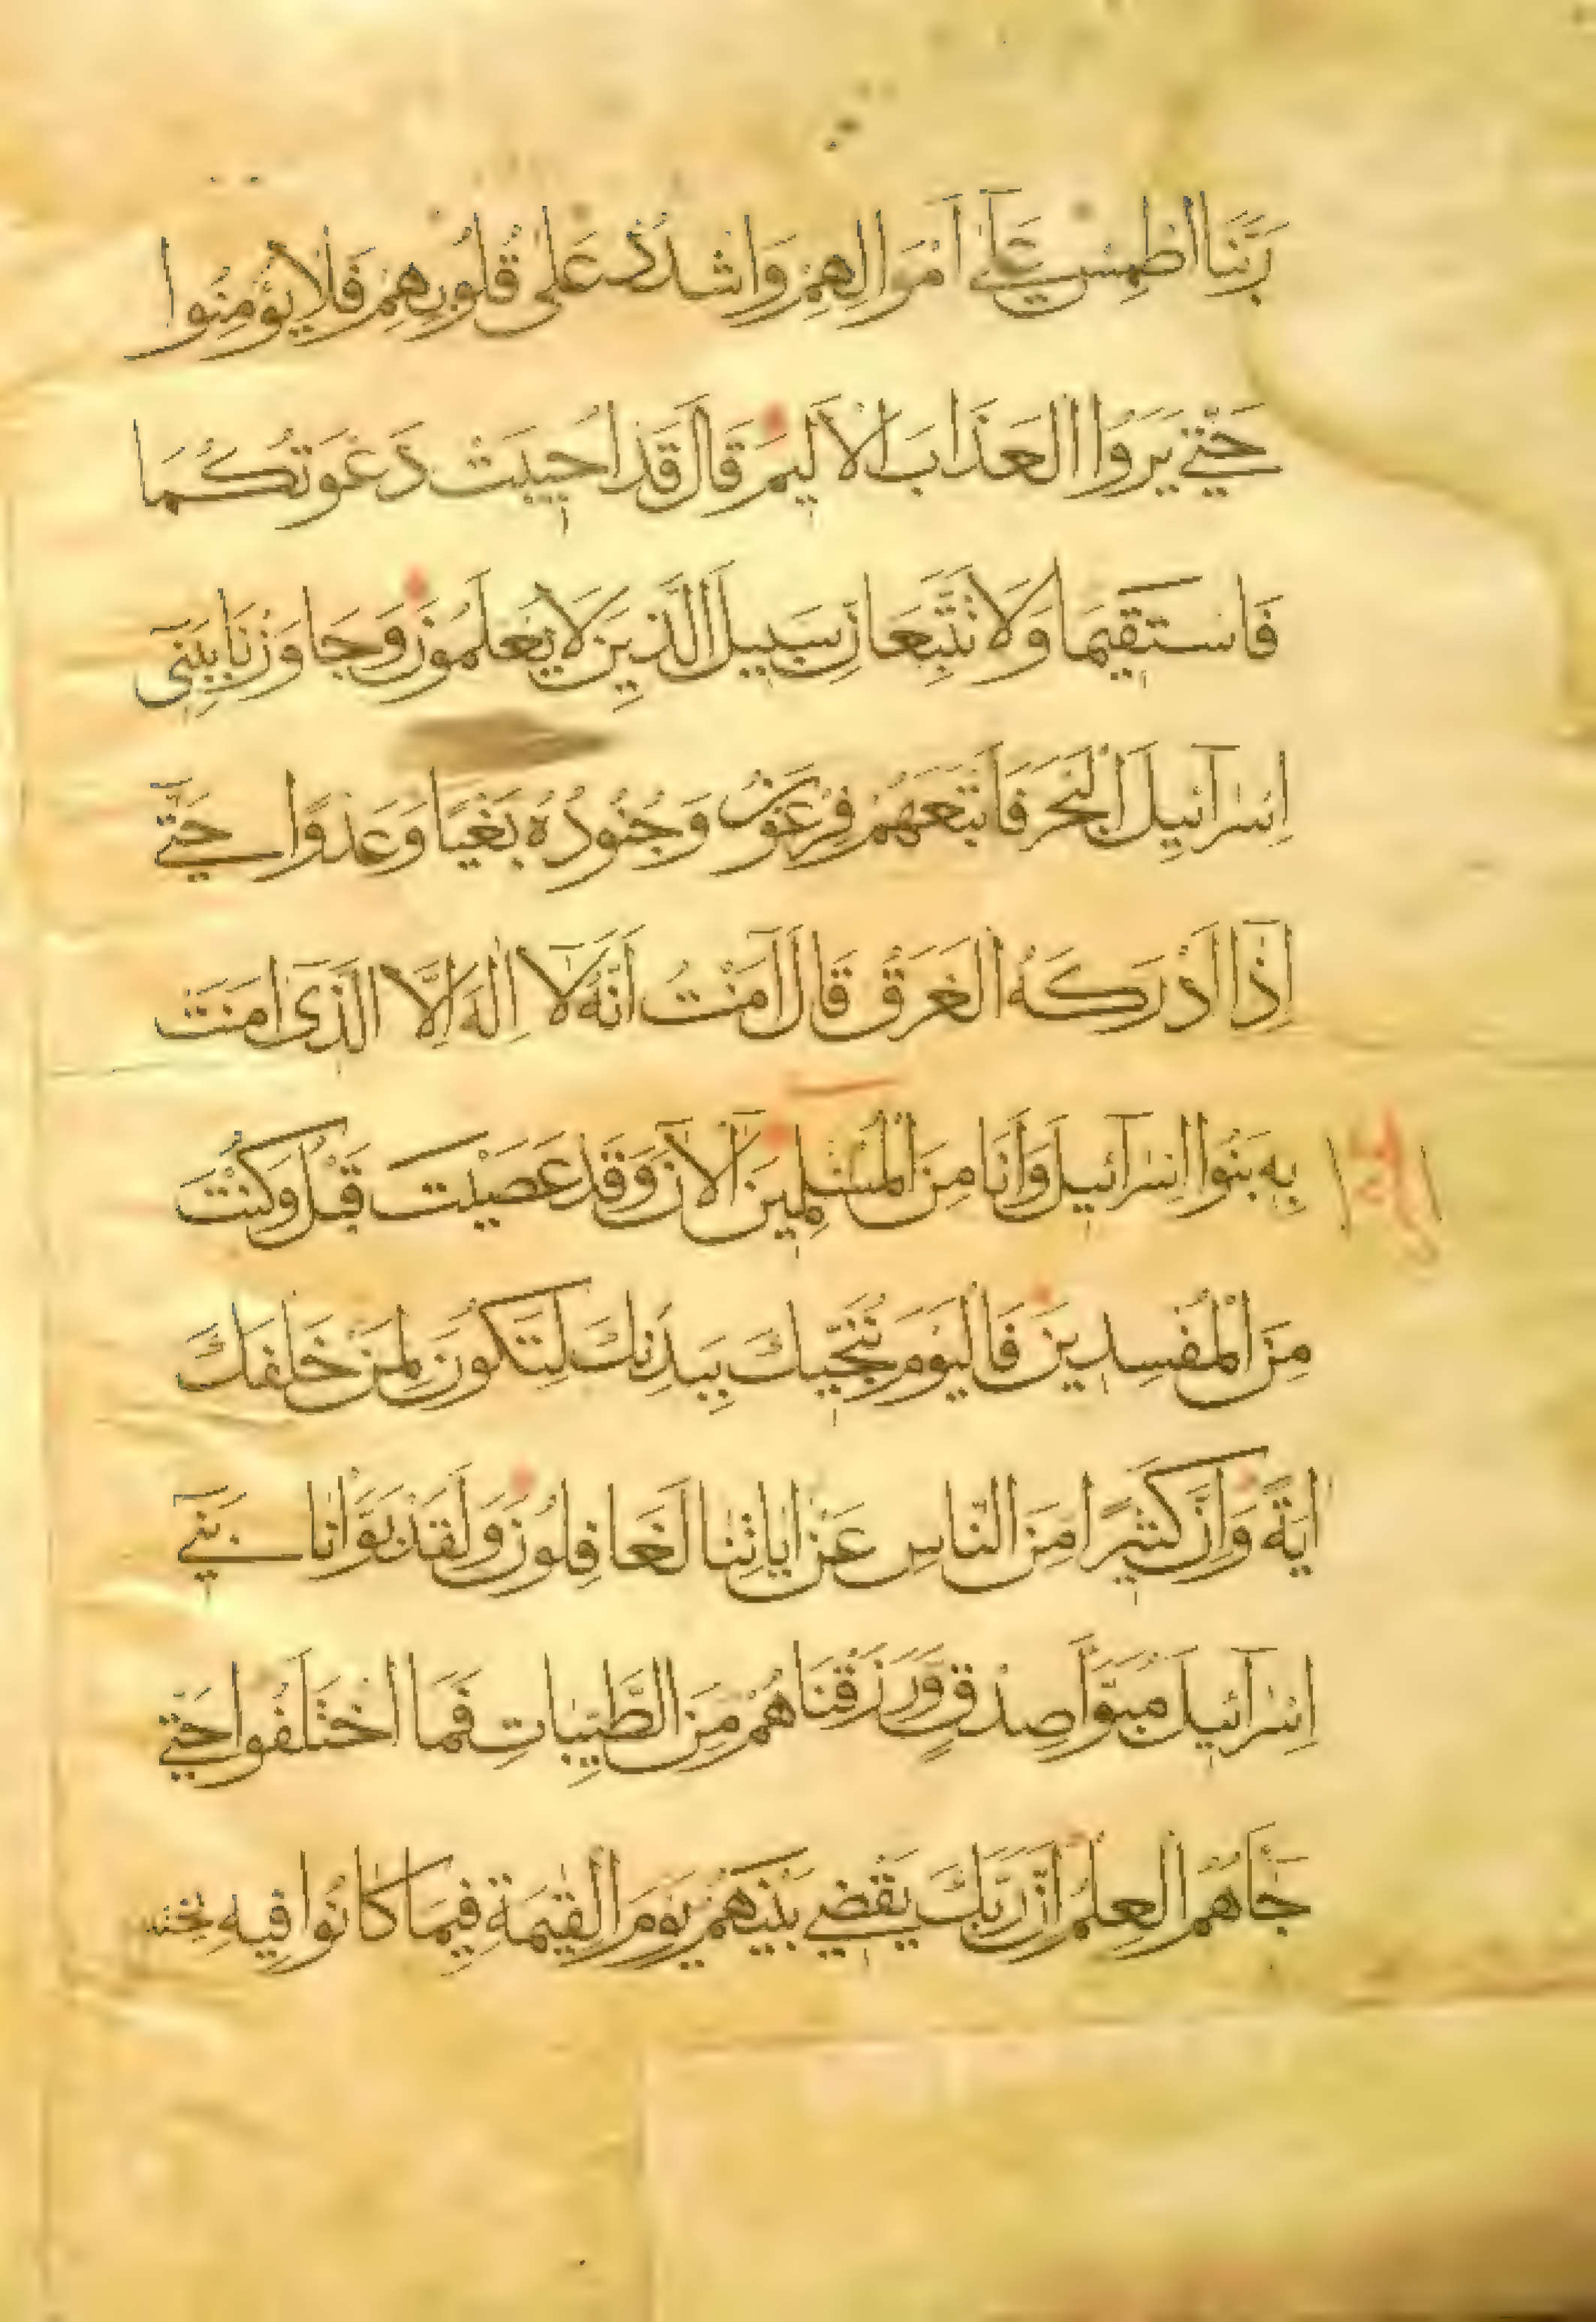 رَبَّنَا اطْمِسْ عَلٰٓى اَمْوَالِهِمْ وَاشْدُدْ عَلٰى قُلُوبِهِمْ فَلَا يُؤْمِنُوا
حَتّٰى يَرَوُا الْعَذَابَ الْاَلِيمَ قَالَ قَدْ اُجِيبَتْ دَعْوَتُكُمَا
فَاسْتَقِيمَا وَلَا تَتَّبِعَانِّ سَبِيلَ الَّذِينَ لَا يَعْلَمُونَ وَجَاوَزْنَا بِبَنِٓى
اِسْرَآئِيلَ الْبَحْرَ فَاَتْبَعَهُمْ فِرْعَوْنُ وَجُنُودُهُ بَغْيًا وَعَدْوًا حَتّٰٓى
اِذَٓا اَدْرَكَهُ الْغَرَقُ قَالَ اٰمَنْتُ اَنَّهُ لَٓا اِلٰهَ اِلَّا الَّذِٓى اٰمَنَتْ
بِهِ بَنُوا اِسْرَآئِيلَ وَاَنَا مِنَ الْمُسْلِمِينَ آلْاٰنَ وَقَدْ عَصَيْتَ قَبْلُ وَكُنْتَ
مِنَ الْمُفْسِدِينَ فَالْيَوْمَ نُنَجِّيكَ بِبَدَنِكَ لِتَكُونَ لِمَنْ خَلْفَكَ
اٰيَةً وَاِنَّ كَثِيرًا مِنَ النَّاسِ عَنْ اٰيَاتِنَا لَغَافِلُونَ وَلَقَدْ بَوَّاْنَا بَنِٓى
اِسْرَآئِيلَ مُبَوَّاَ صِدْقٍ وَرَزَقْنَاهُمْ مِنَ الطَّيِّبَاتِ فَمَا اخْتَلَفُوا حَتّٰى
جَٓاءَهُمُ الْعِلْمُ اِنَّ رَبَّكَ يَقْضِى بَيْنَهُمْ يَوْمَ الْقِيٰمَةِ فِيمَا كَانُوا فِيهِ